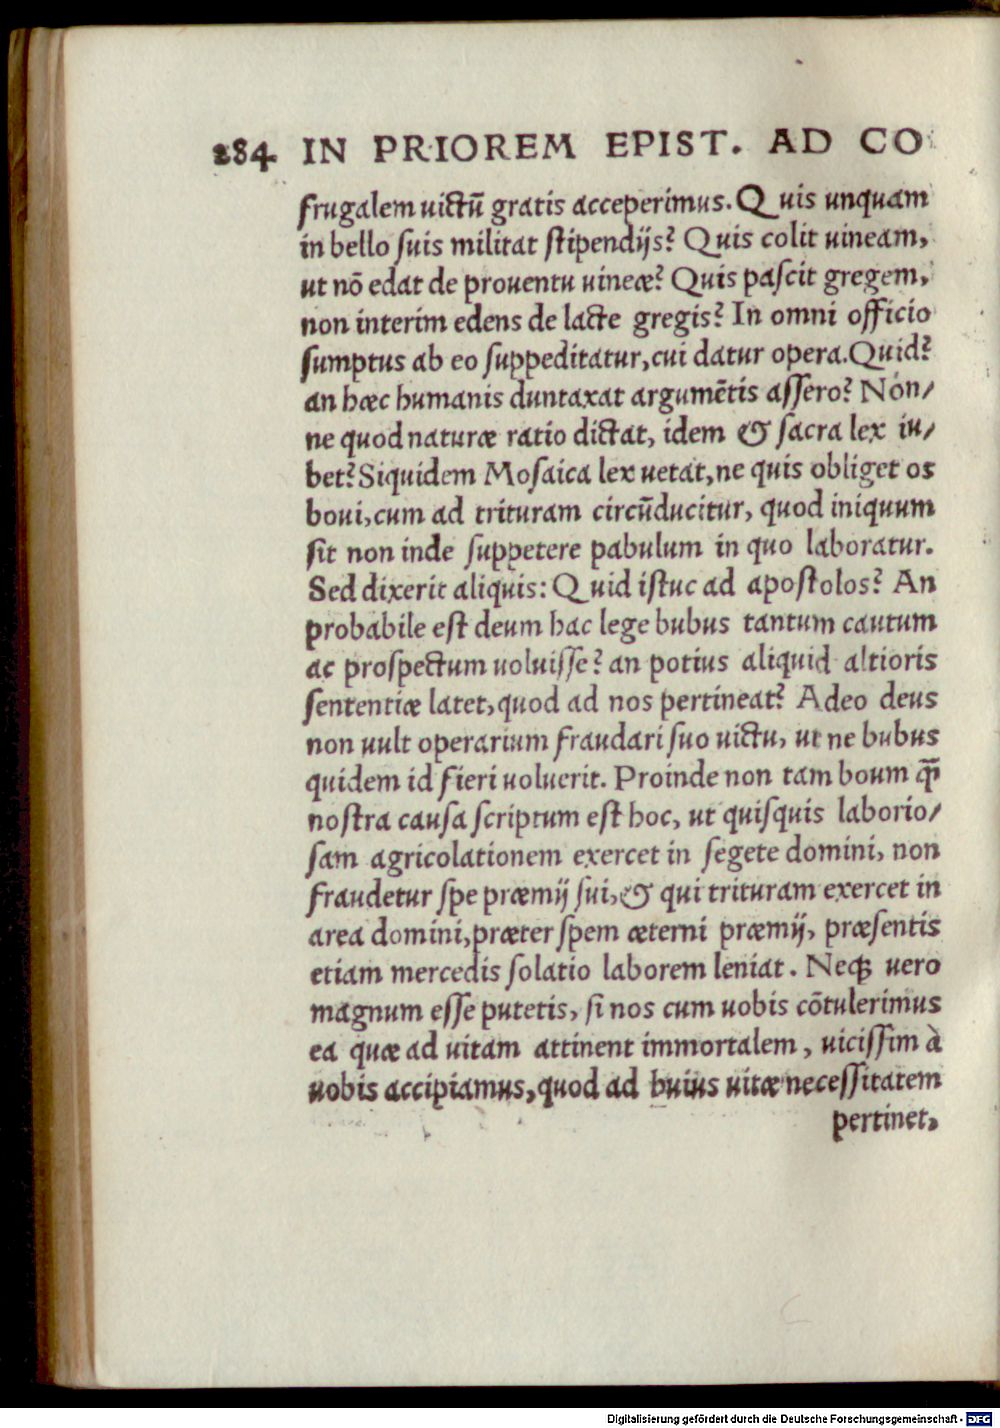 284 IN PRIOREM EPIST. AD CO
frugalem uictū gratis acceperimus. Quis unquam
in bello suis militat stipendijs? Quis colit uineam,
ut nō edat de prouentu uineæ? Quis pascit gregem,
non interim edens de lacte gregis? In omni officio
sumptus ab eo suppeditatur, cui datur opera. Quid?
an hæc humanis duntaxat argumētis assero? Non/
ne quod naturæ ratio dictat, idem & sacra lex iu/
bet? Siquidem Mosaica lex uetat, ne quis obliget os
boui, cum ad trituram circūducitur, quod iniquum
sit non inde suppetere pabulum in quo laboratur.
Sed dixerit aliquis: Quid istuc ad apostolos? An
probabile est deum hac lege bubus tantum cautum
ac prospectum uoluisse? an potius aliquid altioris
sententiæ latet, quod ad nos pertineat? Adeo deus
non uult operarium fraudari suo uictu, ut ne bubus
quidem id fieri uoluerit. Proinde non tam boum q̄
nostra causa scriptum est hoc, ut quisquis laborio/
sam agricolationem exercet in segete domini, non
fraudetur spe præmij sui, & qui trituram exercet in
area domini, præter spem æterni præmij, præsentis
etiam mercedis solatio laborem leniat. Neqꝫ uero
magnum esse putetis, si nos cum uobis cōtulerimus
ea quæ ad uitam attinent immortalem, uicissim à
uobis accipiamus, quod ad huius uitæ necessitatem
pertinet,
Digitalisierung gefördert durch die Deutsche Forschungsgemeinschaft - DFG